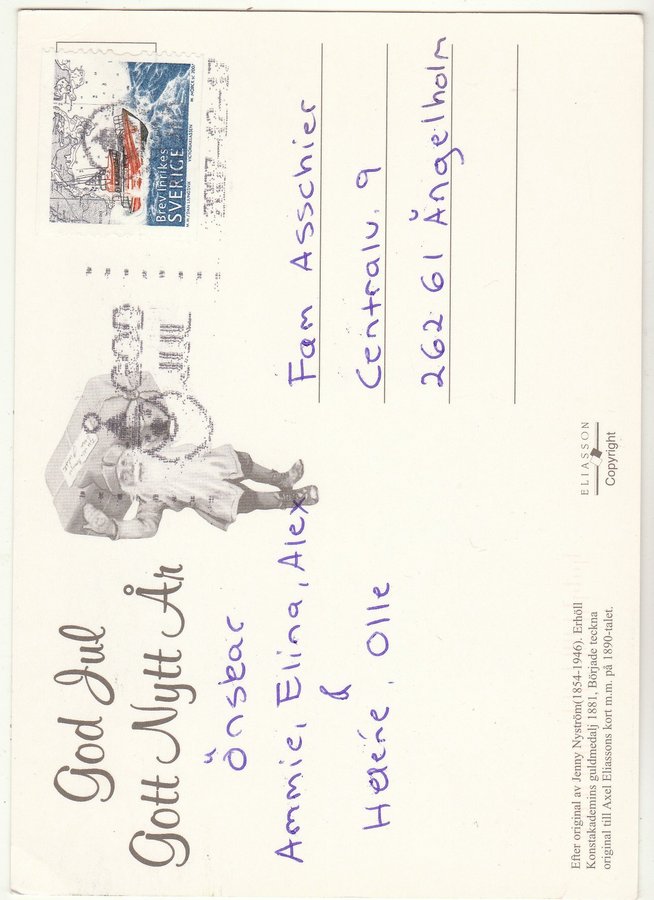 God Jul
Gott Nytt År
Önskar
Ammie, Elina, Alex
&
Heléne, Olle
Efter original av Jenny Nyström(1854-1946). Erhöll
Konstakademins guldmedalj 1881, Började teckna
original till Axel Eliassons kort m.m. på 1890-talet.
Brev inrikes
SVERIGE
Fam Asschier
Centralv. 9
262 61 Ängelholm
ELIASSON
Copyright